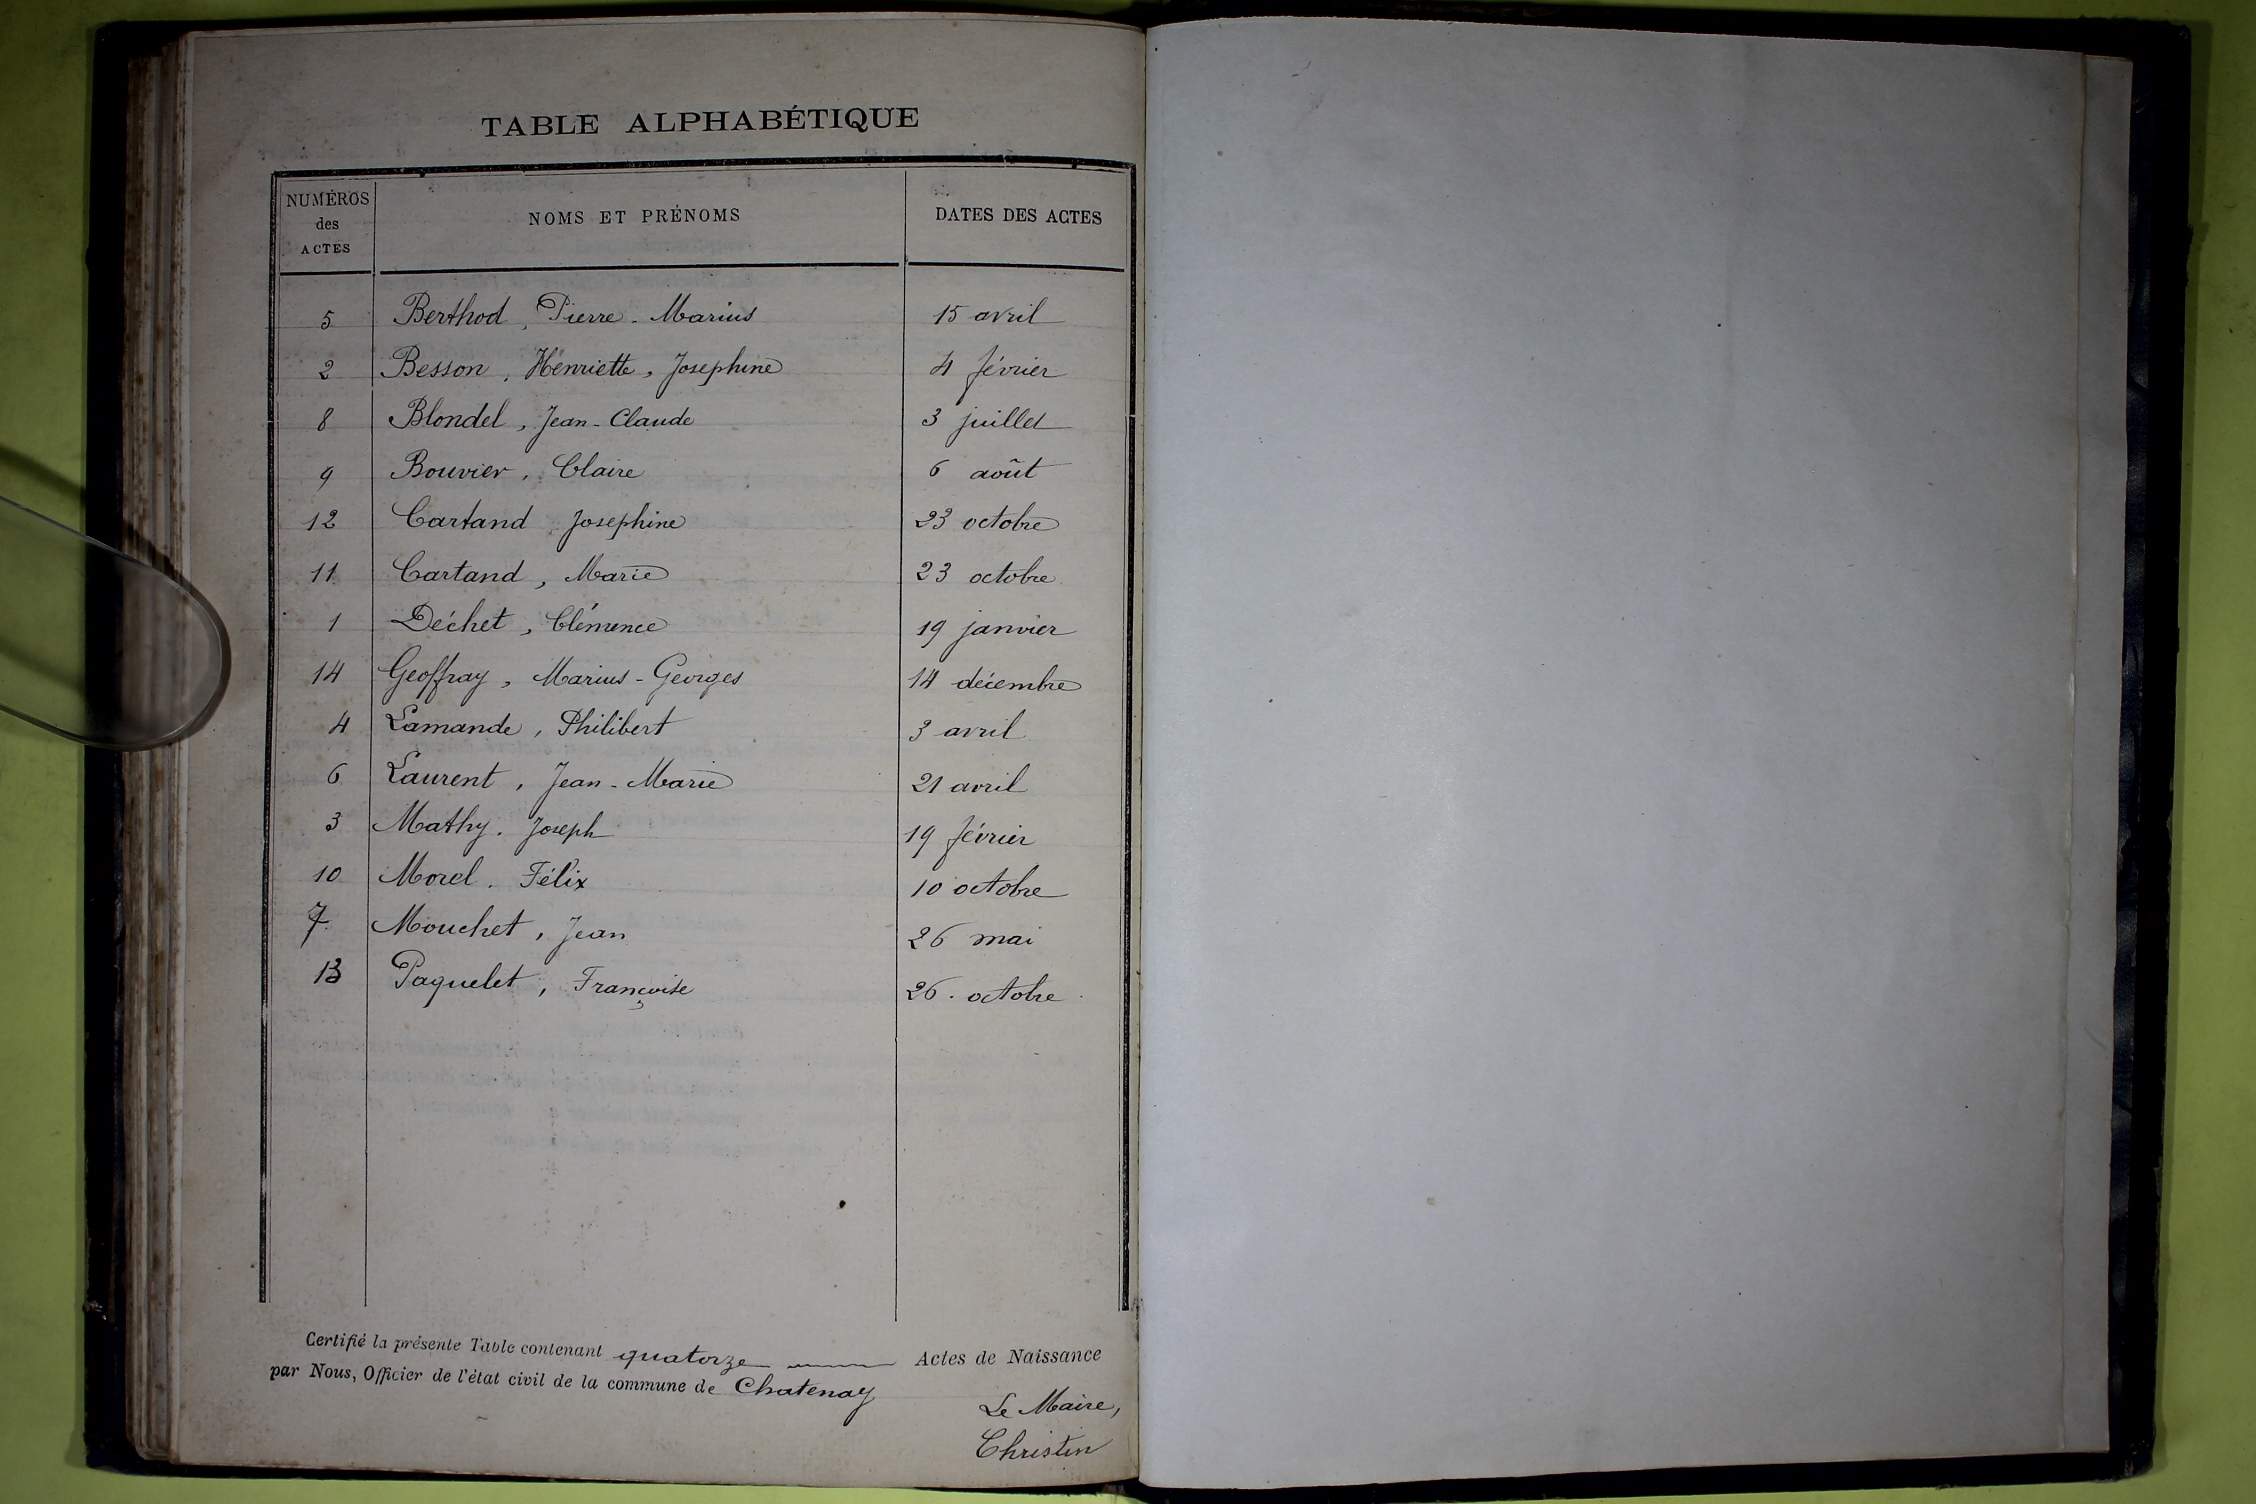 TABLE ALPHABÉTIQUE
NUMÉROS des ACTES NOMS ET PRÉNOMS DATES DES ACTES
5 Berthod, Pierre-Marius 15 avril
2 Besson, Henriette, Josephine 4 février
8 Blondel, Jean-Claude 3 juillet
9 Bouvier, Claire 6 août
12 Cartand Josephine 23 octobre
11 Cartand, Marie 23 octobre
1 Déchet, Clémence 19 janvier
14 Geoffray, Marius-Georges 14 décembre
4 Lamande, Philibert 3 avril
6 Laurent, Jean-Marie 21 avril
3 Mathy. Joseph 19 février
10 Morel. Félix 10 octobre
7 Mouchet, Jean 26 mai
13 Paquelet, Françoise 26. octobre
Certifié la présente Table contenant quatorze Actes de Naissance
par Nous, Officier de l'état civil de la commune de Chatenay
Le Maire,
Christin